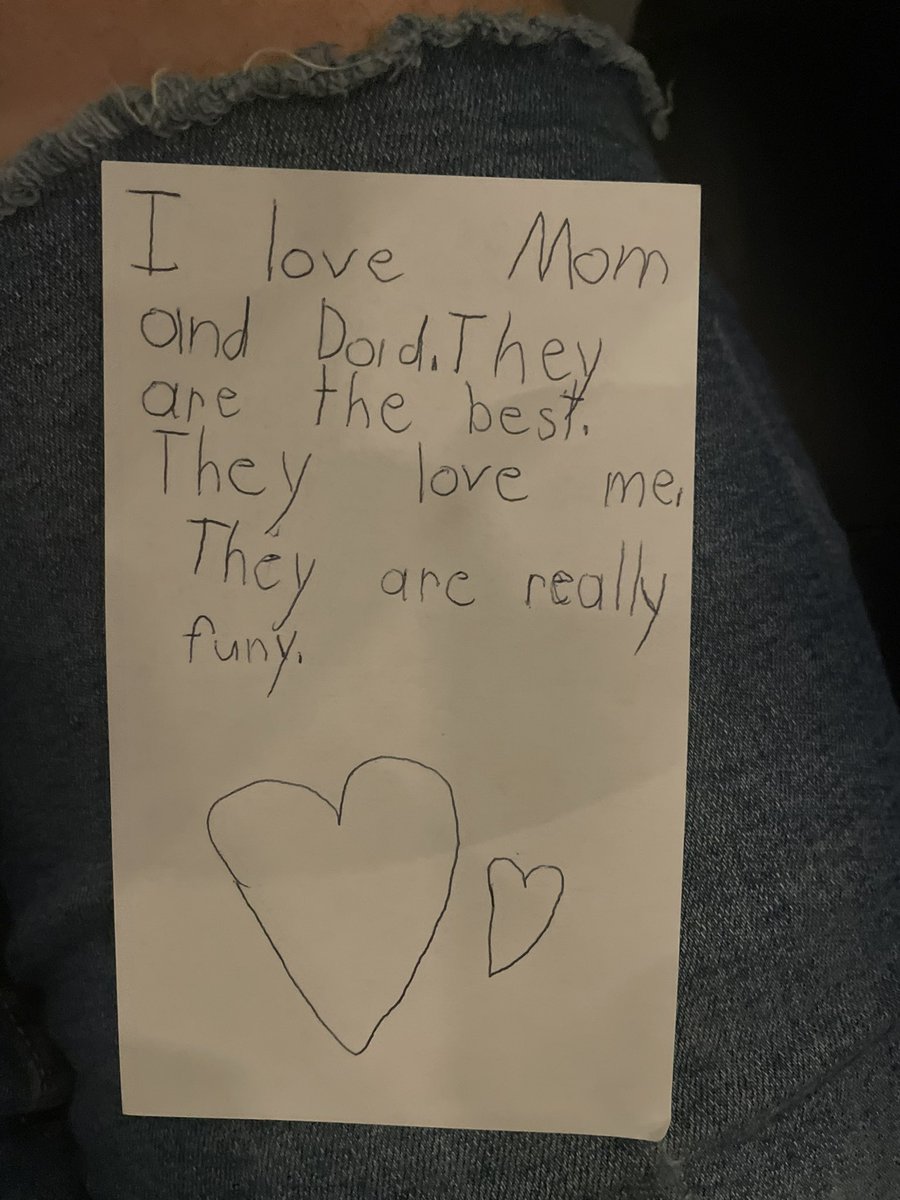 I love Mom
and Dad. They
are the best.
They love me.
They are really
funy.